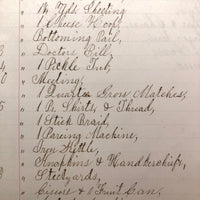 Yds Sheeting
1 Cheese
Bottoming Pail,
Doctors Bill,
1 Pickle Tub,
Meeting,
1 Quarter Gross Matches,
1 Pr. Shirts & Thread,
1 Stick Braid,
1 Pareing Machine,
Iron Kettle,
& Handkerchief,
Steelyards,
& 1 Fruit Can,